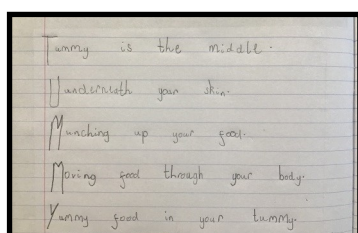 Tummy is the middle.
Uunderneath your skin.
Munching up your food.
Moving food through your body.
Yummy food in your tummy.